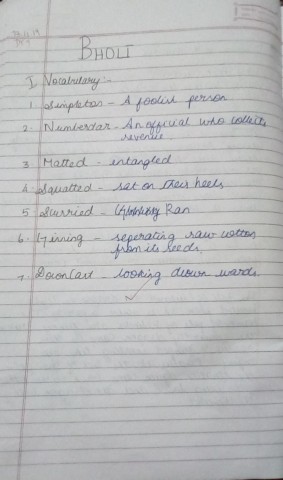 BHOLI
I Vocabulary :-
1 Simpleton - A foolish person
2. Numberdar - An official who collects
revenue.
3 Matted - entangled
4. Squatted - sat on their heels
5 Scurried - Ran
6. Ginning - seperating raw cotton
from its seeds.
7. DownCast - looking down wards